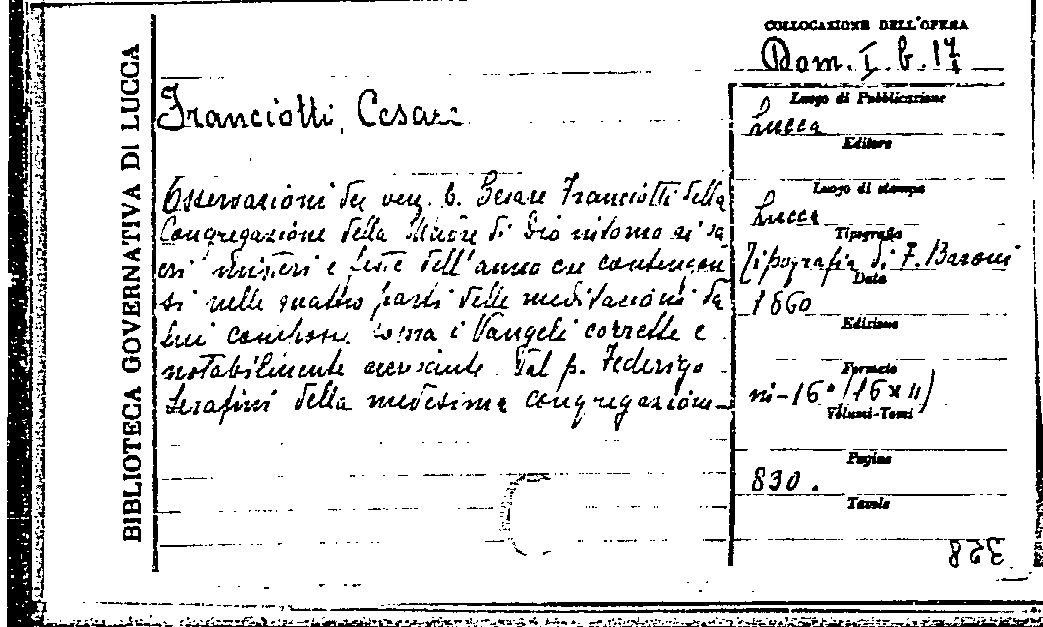 BIBLIOTECA GOVERNATIVA DI LUCCA
COLLOCAZIONE DELL'OPERA
Dom. I. b. 17
Franciotti, Cesare
Osservazioni del ven. C. Cesare Franciotti della
Congregazione della Madre di Dio intorno ai sa
cri misteri e feste dell'anno che contengon
si nelle quattro parti delle meditazioni da
lui composte sopra i Vangeli corrette e
notabilmente accresciute Dal p. Federigo
Serafini della medesima congregazione
Luogo di Pubblicazione
Lucca
Editore
Luogo di stampa
Lucca
Tipografia
Tipografia di F. Baroni
Data
1860
Edizione
Formato
in-16° (16x11)
Volumi-Tomi
Pagine
830.
Tavole
328